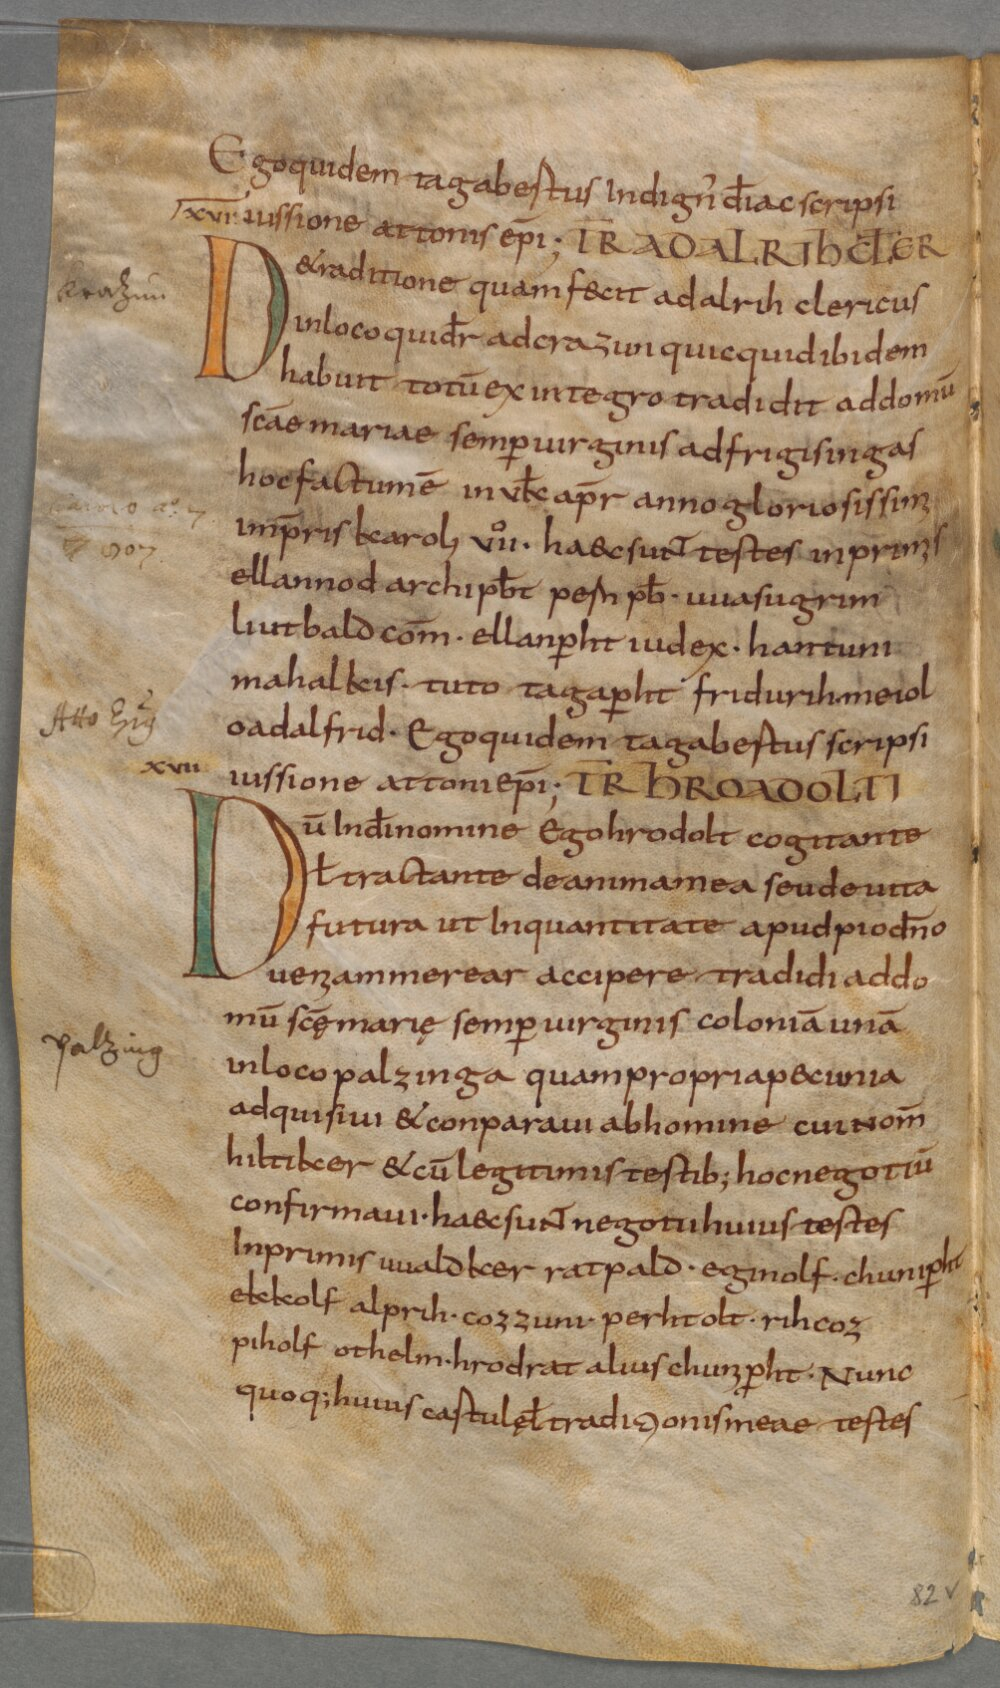 Ego quidem tagabestus Indign̄ d̄iac scripsi
xvi iussione attonis ep̄i; TR ADALRIH CLER
De traditione quam fecit adalrih clericus
Krazun
in loco qui dr̄ ad crazun quicquid ibidem
habuit totū ex integro tradidit ad domū
sc̄ae mariae semp uirginis ad frigisingas
hoc factum ē in vɪ k apr̄ anno gloriosissim
imp̄ris karoli vıı· haec sunt testes inprimis
807
ellannod archipb̄t pesn pb̄· uuasugrim
liutbald com̄· ellanpht iudex· hantuni
mahalkis· tuto tagapht fridurih· meiol
Atto
oadalfrid· Ego quidem tagabestus scripsi
xvii
iussione attoni ep̄i; TR HROADOLTI
Dū In d̄i nomine Ego hrodolt cogitante
ł tractante de anima mea seu de uita
futura ut In quantitate apud pio dn̄o
ueniam merear accipere tradidi ad do
mū sc̄ę marię semp uirginis coloniā unā
Palzing
in loco palzinga quam propria pecunia
adquisiui & conparaui ab homine cui nom̄
hiltiker & cū legitimis testib; hoc negotiū
confirmaui· haec sunt negotii huius testes
Inprimis uualdker ratpald· eginolf· chunipht
ekkolf alprih· cozzuni· perhtolt· rihcoz
piholf othelm· hrodrat alius chunipht· Nunc
quoq; huius castulę ł traditionis meae testes
82v